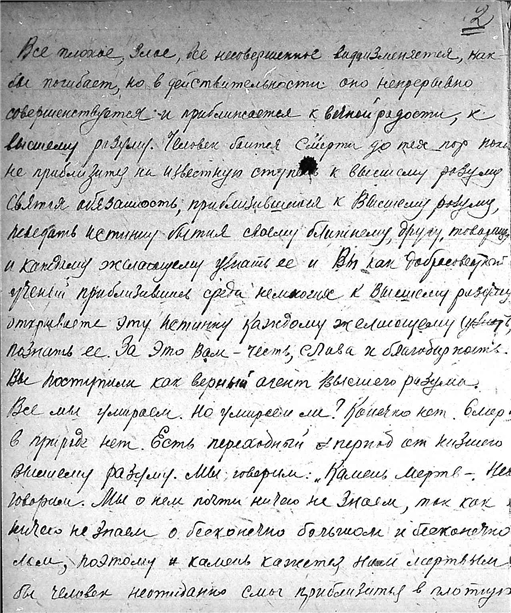 2
Все плохое, злое, все несовершенное видоизменяется, как
бы погибает, но в действительности оно непрерывно
совершенствуется и приближается к вечной радости, к
высшему разуму. Человек боится смерти до тех пор пока
не приблизится на известную ступень к высшему разуму
святая обязанность, приблизившшихся к Высшему разуму,
поведать истину бытия своему ближнему, другу, товарищу
и каждому желающему узнать ее и Вы как добросовестной
ученый приблизившись среди немногих к высшему разуму
открываете эту истинну каждому желающему
познать ее. За это Вам – честь, слава и благодарность.
Вы поступили как верный агент высшего разума.
Все мы умираем. Но умираем ли? Конечно нет. Смер
в природе нет. Есть переходный период от низшего
высшему разуму. Мы говорим: „Камень мертв –. Не
говорим. Мы о нем почти ничего не знаем, так как
ничего не знаем о бесконечно большом и бесконечно
лом, поэтому и камень кажется нам мертвым
бы человек неожиданно смог приблизиться в плотную